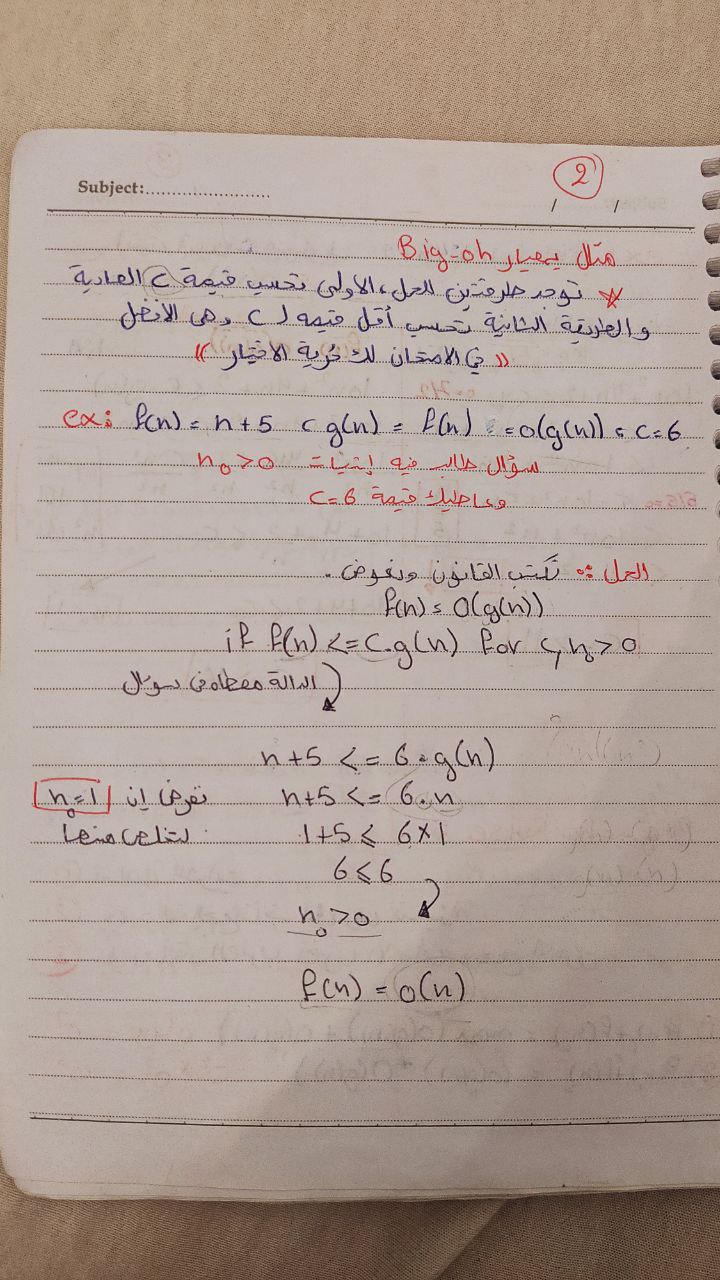 Subject:........................
2
/ /
مثال بمعيار Big-oh
* توجد طريقتين للحل، الاولى تحسب قيمة C العادية
والطريقة الثانية تحسب أقل قيمه لـ C وهي الأفضل
« في الامتحان لك حرية الاختيار »
ex: f(n) = n+5 , g(n) = f(n) = O(g(n)) , C=6
سؤال طالب فيه إثبات n₀>0
وعاطيك قيمة C=6
الحل : نكتب القانون ونعوض.
f(n) = O(g(n))
if f(n) <= C.g(n) for c, n₀ > 0
الدالة معطاه في سؤال
n+5 <= 6.g(n)
n+5 <= 6.n نفرض إن n₀=1
1+5 ≤ 6×1
6 ≤ 6
n₀ >0
f(n) = O(n)